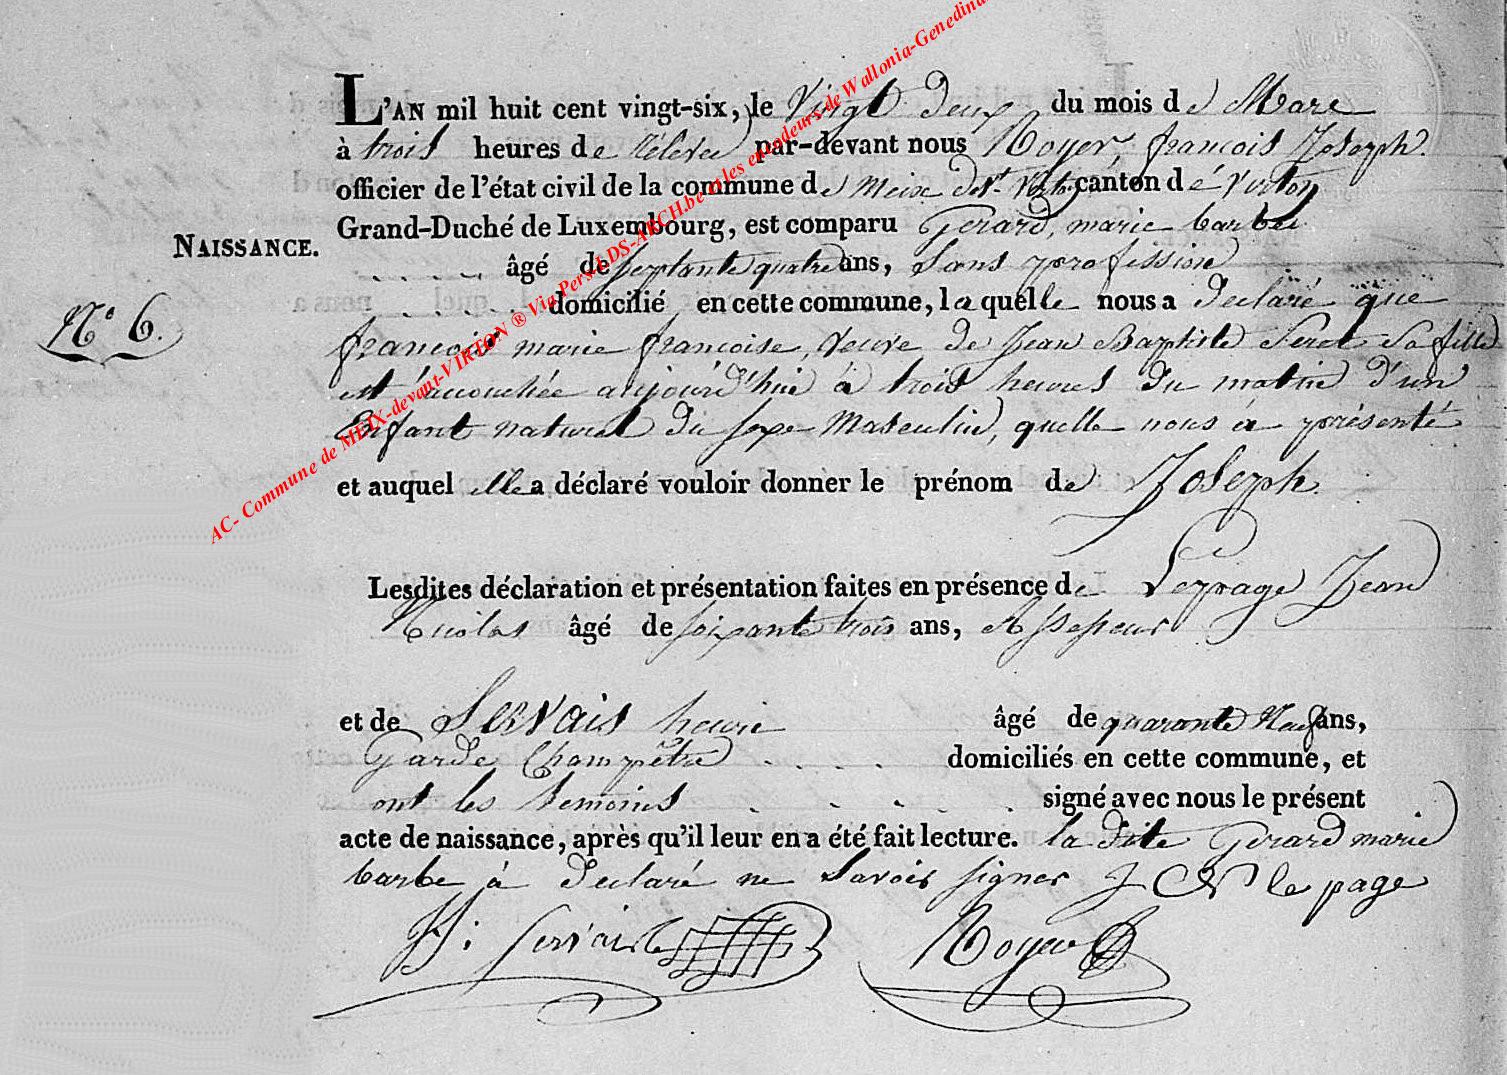 L'AN mil huit cent vingt-six, le Vingt deux du mois de Mars
à trois heures de rélevée par-devant nous Royer, françois Joseph.
officier de l'état civil de la commune de Meix dvt. Virton canton de Virton
Grand-Duché de Luxembourg, est comparu Gerard, marie barbe
NAISSANCE.
âgé de septante quatre ans, Sans profession
N° 6.
domicilié en cette commune, laquelle nous a declaré que
marie francoise, veuve de Jean Baptiste Sa fille
est accouchée aujourd'hui à trois heures du matin d'un
Enfant naturel du sexe Masculin, quelle nous à présenté
et auquel elle a déclaré vouloir donner le prénom de Joseph.
Lesdites déclaration et présentation faites en présence de Lepage Jean
Nicolas âgé de soixante trois ans, Assesseur
et de Servais henri âgé de quarante Neuf ans,
Garde Champêtre . . . . domiciliés en cette commune, et
ont les temoins . . . . . signé avec nous le présent
acte de naissance, après qu'il leur en a été fait lecture. la dite Gerard marie
barbe à declaré ne Savoir signer J N le page
H: servais Royer
AC- Commune de MEIX-devant-VIRTON ® Via Pers-LDS-ARCH.be et les encodeurs de Wallonia-Genedina